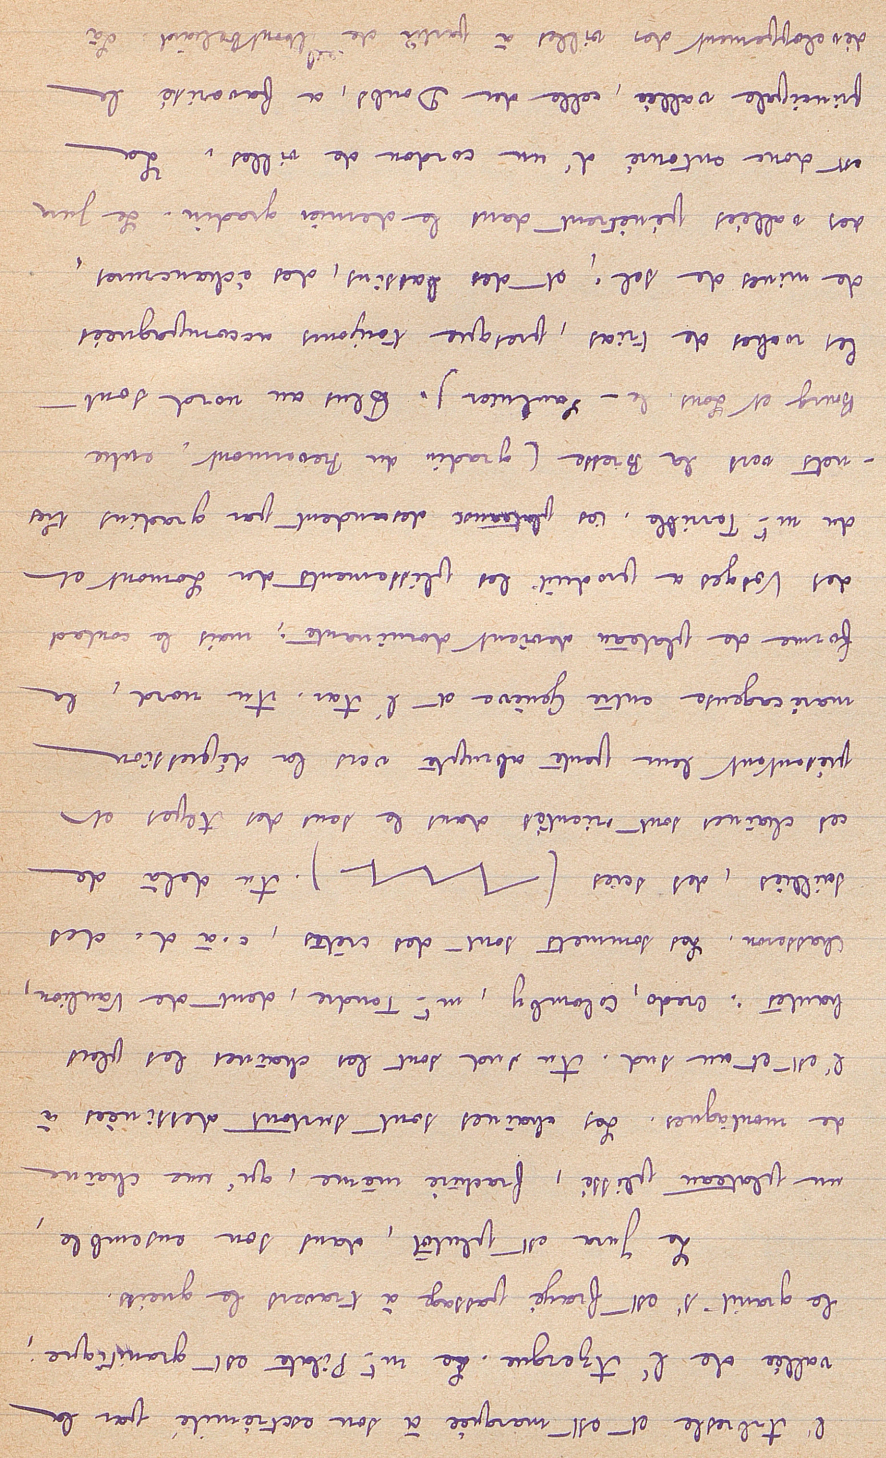 l'Arbresle et est marquée à son extrémité par la
vallée de l'Azergue. Le mt Pilate est granitique ;
le granit s'est frayé passage à travers le gneiss.
Le Jura est plutôt, dans son ensemble,
un plateau plissé, fracturé même, qu'une chaîne
de montagnes. Les chaînes sont surtout dessinées à
l'est et au sud. Au sud sont les chaînes les plus
hautes : Credo, Colomby, mt Tendre, dent de Vaulion,
Chasseron. Les sommets sont des crêtes, c. à d. des
saillies, des scies ( ). Au delà de
ces chaînes sont orientées dans le sens des Alpes et
présentent leur pente abrupte vers la dépression
marécageuse entre Genève et l'Aar. Au nord, la
forme de plateau devient dominante ; mais le contact
des Vosges a produit les plissements du Lomont et
du mt Terrible. Les plateaux descendent par gradins très
- nets vers la Bresse (gradin du Revermont, entre
Bourg et Lons-le-Saulnier). Plus au nord sont
les roches de trias, presque toujours accompagnées
de mines de sel ; et des bassins, des échancrures,
des vallées pénètrent dans le dernier gradin. Le Jura
est donc entouré d'un cordon de villes. La
principale vallée, celle du Doubs, a favorisé le
développement des villes à partir de Montbéliard. Là